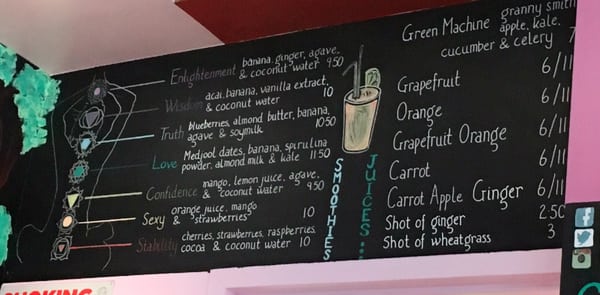 Enlightenment banana, ginger, agave,
& coconut water 9.50
Wisdom acai, banana, vanilla extract,
& coconut water 10
Truth blueberries, almond butter, banana,
agave & soymilk 10.50
Love Medjool dates, banana, spirulina
powder, almond milk & kale 11.50
Confidence mango, lemon juice, agave,
& coconut water 9.50
Sexy orange juice, mango
& strawberries 10
Stability cherries, strawberries, raspberries,
cocoa & coconut water 10
SMOOTHIES
JUICES:
Green Machine granny smith
apple, kale,
cucumber & celery 7
Grapefruit 6/11
Orange 6/11
Grapefruit Orange 6/11
Carrot 6/11
Carrot Apple Ginger 6/11
Shot of ginger 2.50
Shot of wheatgrass 3
SMOKING